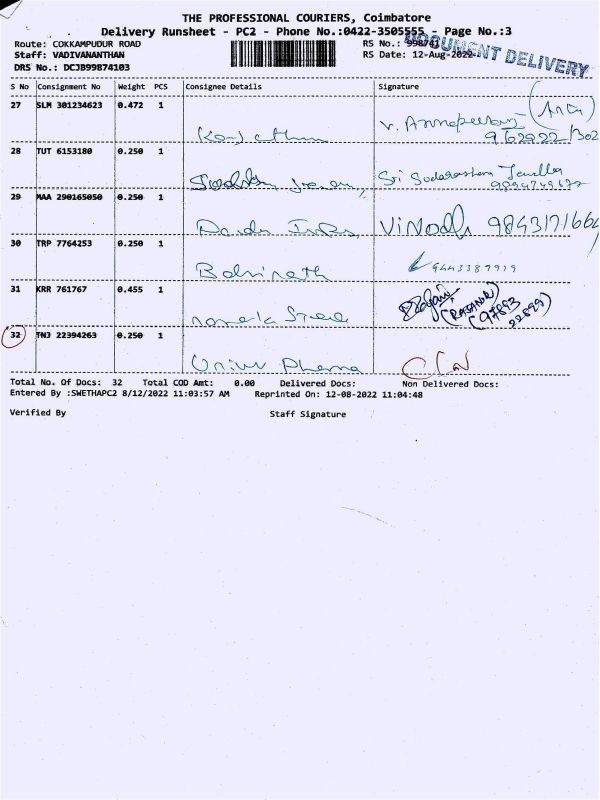 THE PROFESSIONAL COURIERS, Coimbatore
Delivery Runsheet - PC2 - Phone No.:0422-3505555 - Page No.:3
Route: COKKAMPUDUR ROAD RS No.: 998743
Staff: VADIVANANTHAN RS Date: 12-Aug-2022
DRS No.: DCJB99874103
DOCUMENT DELIVERY
S No Consignment No Weight PCS Consignee Details Signature
27 SLM 301234623 0.472 1
V.
28 TUT 6153180 0.250 1
Sri
29 MAA 290165050 0.250 1
Vinodh 9843171664
30 TRP 7764253 0.250 1
9443387919
31 KRR 761767 0.455 1
Steel
(RAJANU)
(97893
22899)
32 TNJ 22394263 0.250 1
Univ Pharma
Total No. Of Docs: 32 Total COD Amt: 0.00 Delivered Docs: Non Delivered Docs:
Entered By :SWETHAPC2 8/12/2022 11:03:57 AM Reprinted On: 12-08-2022 11:04:48
Verified By Staff Signature